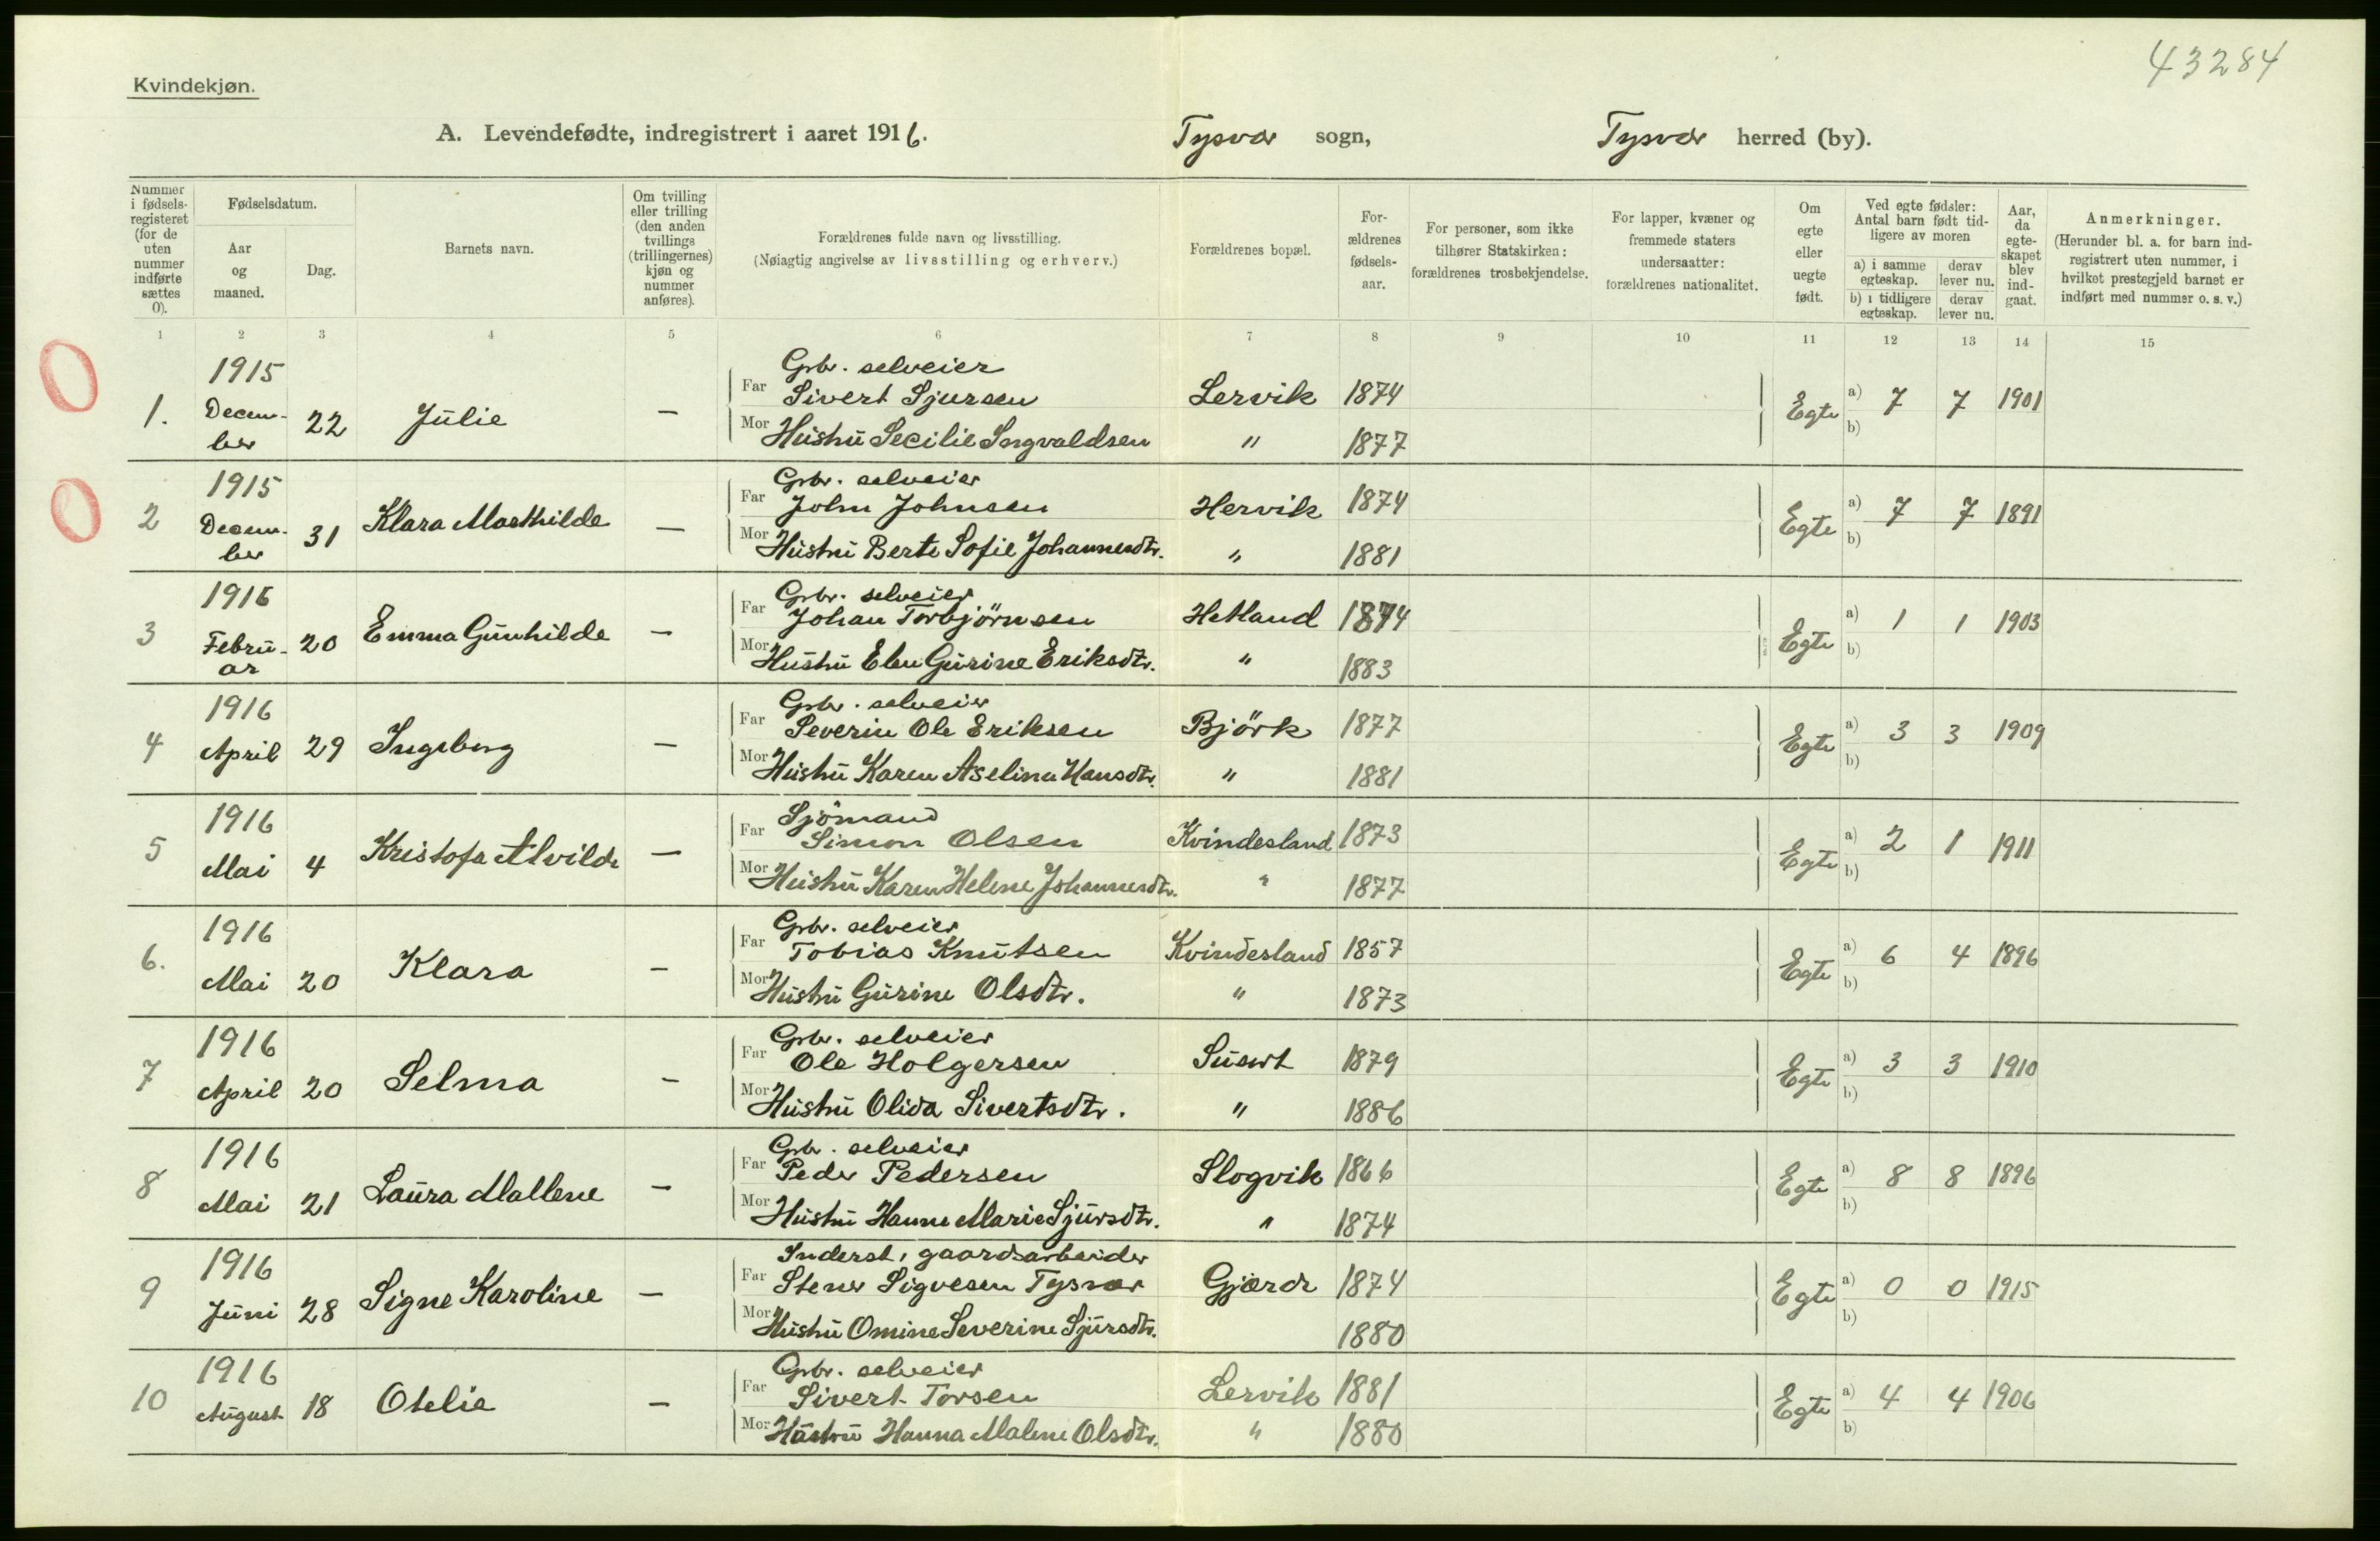 43284
Kvindekjøn.
A. Levendefødte, indregistrert i aaret 1916. Tysvær sogn, Tysvær herred (by).
Nummer i fødsels-registeret (for de uten nummer indførte sættes 0).
Fødselsdatum.
Aar og maaned.
Dag.
Barnets navn.
Om tvilling eller trilling (den anden tvillings (trillingernes) kjøn og nummer anføres).
Forældrenes fulde navn og livsstilling.
(Nøiagtig angivelse av livsstilling og erhverv.)
Forældrenes bopæl.
For-ældrenes fødsels-aar.
For personer, som ikke tilhører Statskirken: forældrenes trosbekjendelse.
For lapper, kvæner og fremmede staters undersaatter: forældrenes nationalitet.
Om egte eller uegte født.
Ved egte fødsler: Antal barn født tid-ligere av moren
a) i samme egteskap. derav lever nu.
b) i tidligere egteskap. derav lever nu.
Aar, da egte-skapet blev ind-gaat.
Anmerkninger.
(Herunder bl. a. for barn ind-registrert uten nummer, i hvilket prestegjeld barnet er indført med nummer o. s. v.)
1 2 3 4 5 6 7 8 9 10 11 12 13 14 15
1915 Grbr. selveier
1. Decem-ber 22 Julie — Far Sivert Sjursen Lervik 1874 Egte a) 7 7 1901
Mor Hustru Secilie Ingvaldsen " 1877 b)
1915 Grbr. selveier
2 Decem-ber 31 Klara Mathilde — Far John Johnsen Hervik 1874 Egte a) 7 7 1891
Mor Hustru Berte Sofie Johannesdtr. " 1881 b)
1916 Grbr. selveier
3 Febru-ar 20 Emma Gunhilde — Far Johan Torbjörnsen Hetland 1874 Egte a) 1 1 1903
Mor Hustru Elen Gurine Eriksdtr. " 1883 b)
1916 Grbr. selveier
4 April 29 Ingeborg — Far Severin Ole Eriksen Björk 1877 Egte a) 3 3 1909
Mor Hustru Karen Aselina Hansdtr. " 1881 b)
1916 Sjömand
5 Mai 4 Kristofa Alvilde — Far Simon Olsen Kvindesland 1873 Egte a) 2 1 1911
Mor Hustru Karen Helene Johannesdtr. " 1877 b)
1916 Grbr. selveier
6. Mai 20 Klara — Far Tobias Knutsen Kvindesland 1857 Egte a) 6 4 1896
Mor Hustru Gurine Olsdtr. " 1873 b)
1916 Grbr. selveier
7 April 20 Selma — Far Ole Holgersen 1879 Egte a) 3 3 1910
Mor Hustru Olida Sivertsdtr. " 1886 b)
1916 Grbr. selveier
8 Mai 21 Laura Mallene — Far Peder Pedersen Slogvik 1866 Egte a) 8 8 1896
Mor Hustru Hanne Marie Sjursdtr. " 1874 b)
1916 Inderst, gaardsarbeider
9 Juni 28 Signe Karoline — Far Stener Sigvesen Tysvær Gjærde 1874 Egte a) 0 0 1915
Mor Hustru Omine Severine Sjursdtr. 1880 b)
1916 Grbr. selveier
10 August 18 Otelie — Far Sivert Torsen Lervik 1881 Egte a) 4 4 1906
Mor Hustru Hanna Malene Olsdtr. " 1880 b)